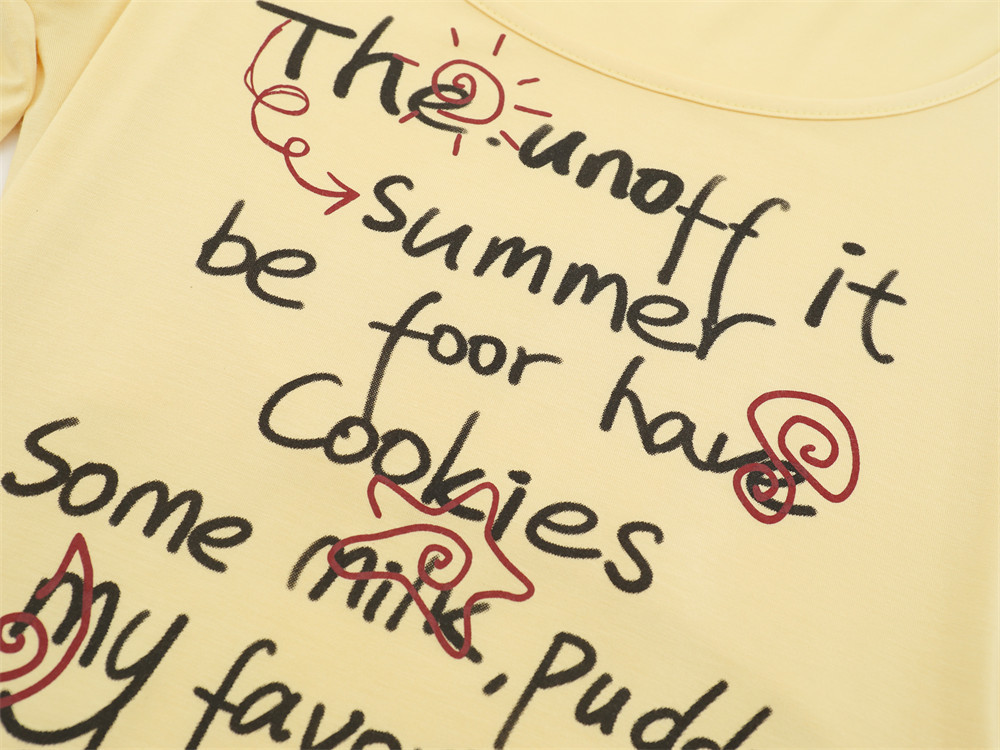 The. unoff it
summer
be foor have
Cookies
Some milk, pudd
my favo